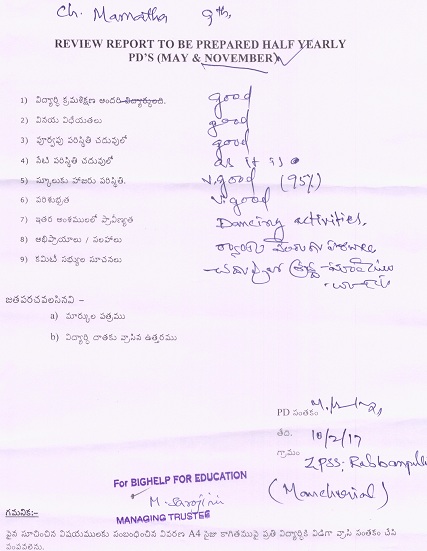 Ch. Mamatha 9th,
REVIEW REPORT TO BE PREPARED HALF YEARLY
PD'S (MAY & NOVEMBER)
1) విద్యార్థి క్రమశిక్షణ అందరి విద్యార్థులది. good
2) వినయ విధేయతలు good
3) పూర్వపు పరిస్థితి చదువులో good
4) నేటి పరిస్థితి చదువులో as it is.
5) స్కూలుకు హాజరు పరిస్థితి. v.good (95%)
6) పరిశుభ్రత v.good
7) ఇతర అంశములలో ప్రావీణ్యత Dancing activities.
8) అభిప్రాయాలు / సలహాలు
9) కమిటీ సభ్యుల సూచనలు
జతపరచవలసినవి –
a) మార్కుల పత్రము
b) విద్యార్థి దాతకు వ్రాసిన ఉత్తరము
PD సంతకం
తేది. 10/2/17
గ్రామం ZPSS,
(Mancherial)
For BIGHELP FOR EDUCATION
M. Sarojini
MANAGING TRUSTEE
గమనిక:-
పైన సూచించిన విషయములకు సంబంధించిన వివరణ A4 సైజు కాగితముపై ప్రతి విద్యార్థికి విడిగా వ్రాసి సంతకం చేసి
పంపవలెను.